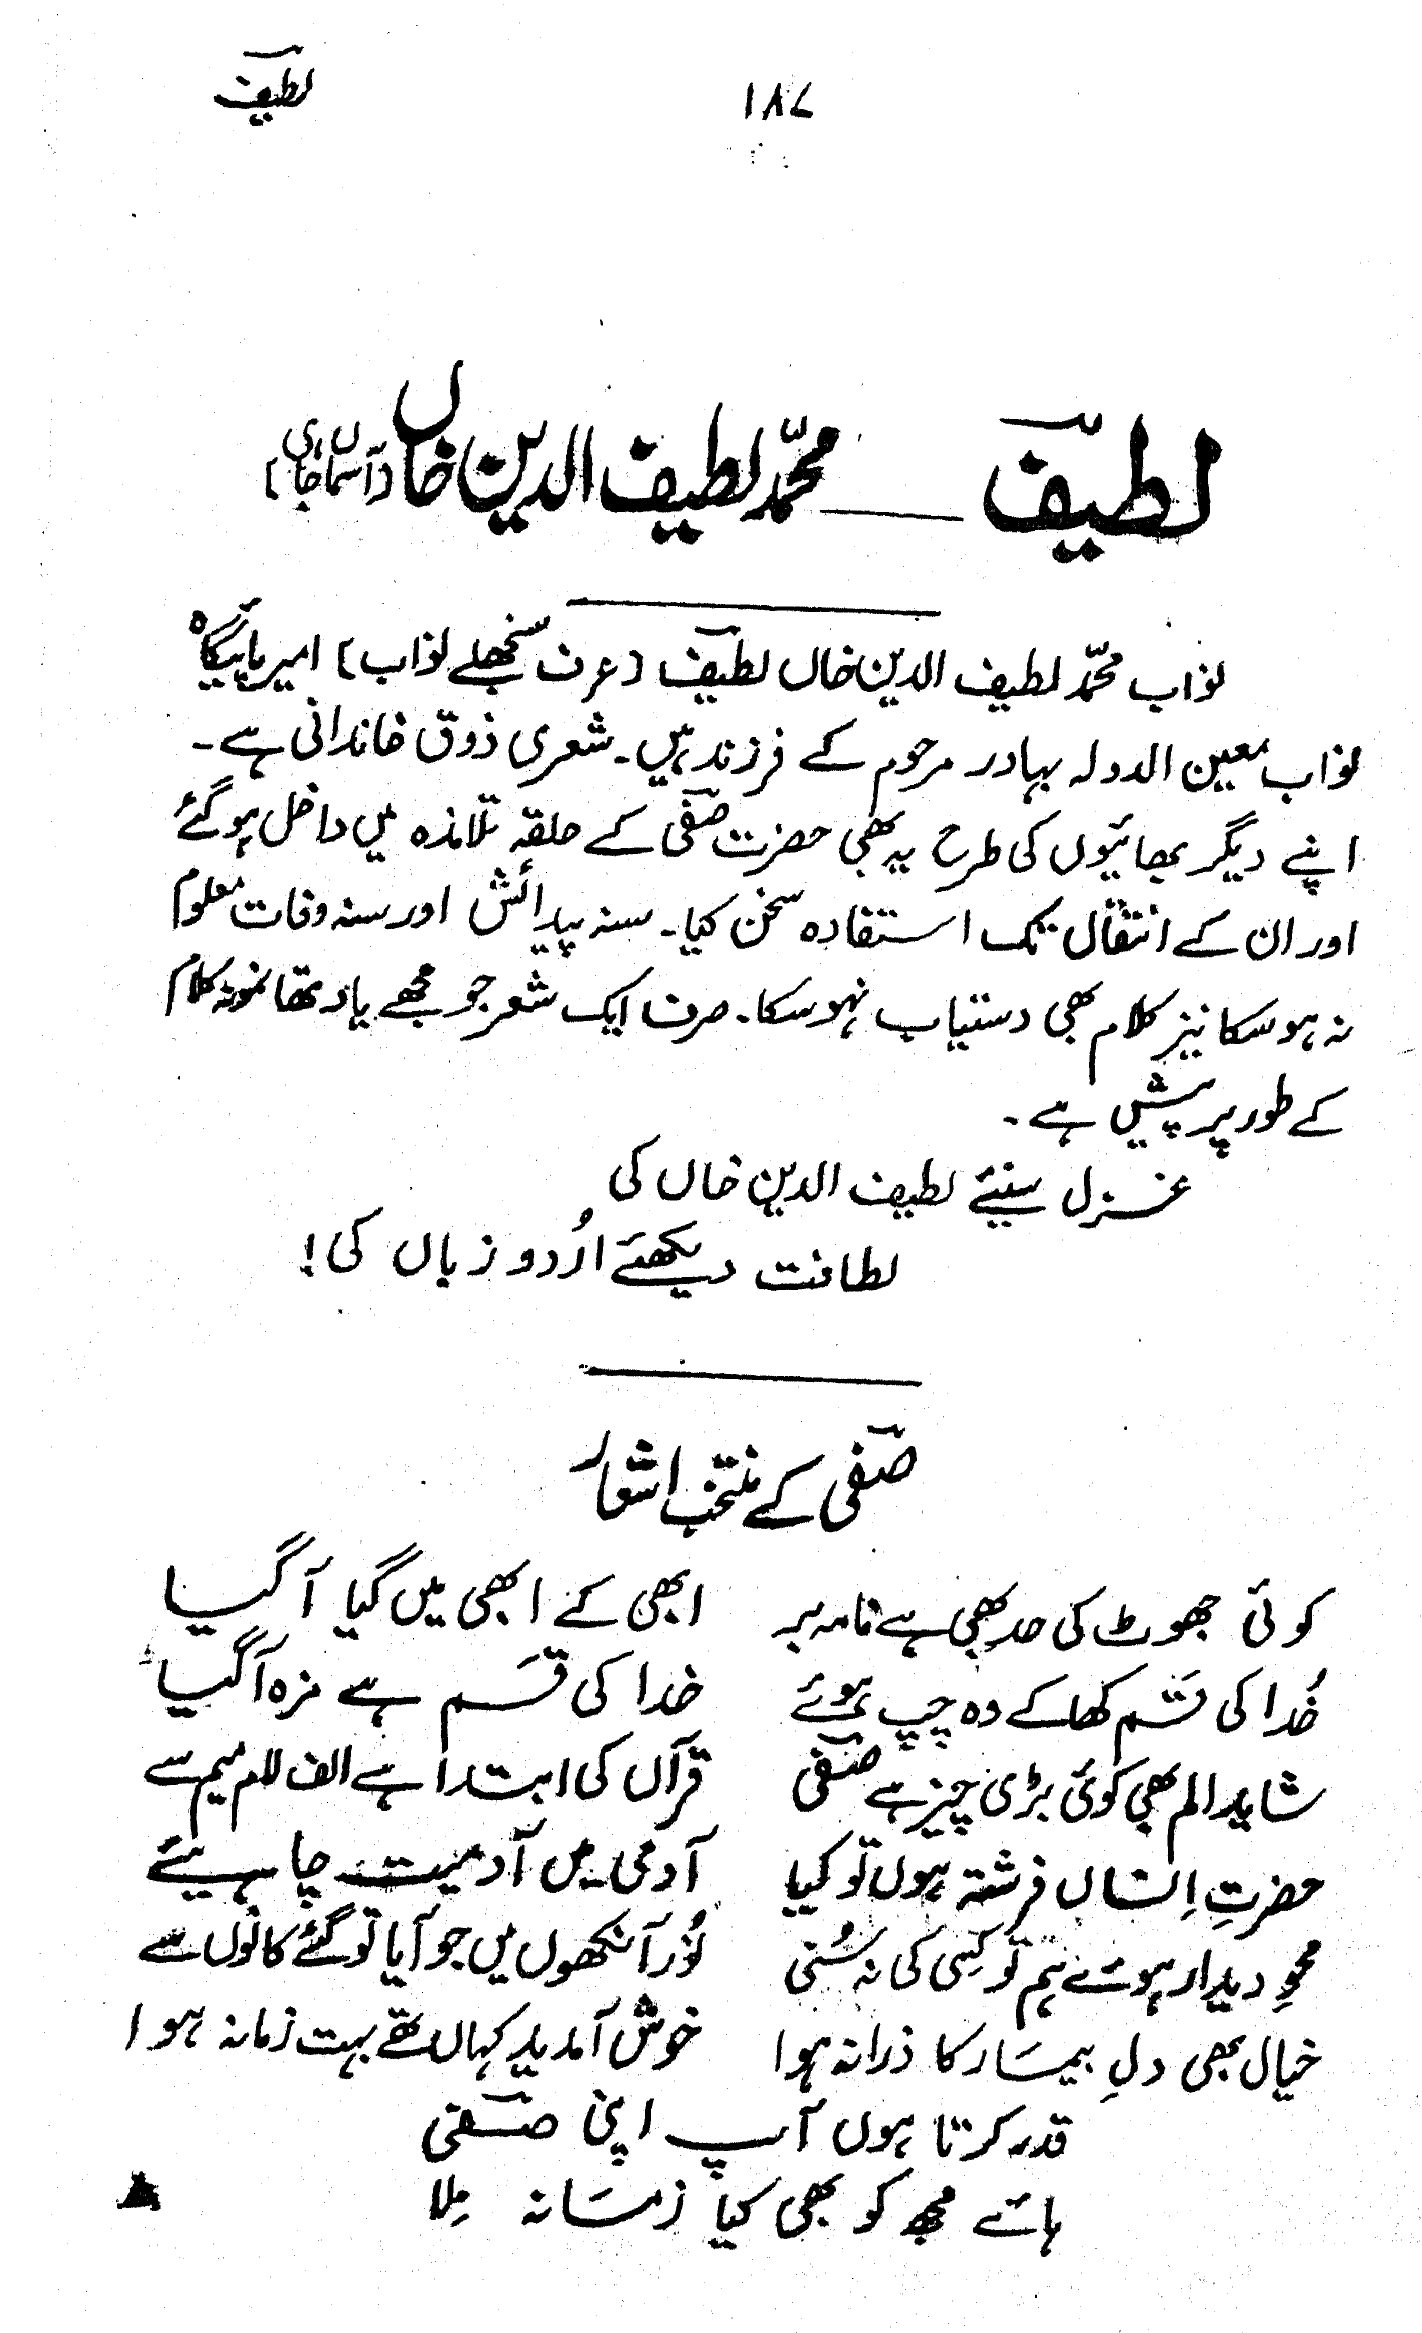 ۱۸۷
لطیفؔ
لطیفؔ — محمّد لطیف الدین خاں (آسماں جاہی)
نواب محمّد لطیف الدین خاں لطیفؔ (عرف سنجھلے نواب) امیر پائیگاہ
نواب معین الدولہ بہادر مرحوم کے فرزند ہیں۔ شعری ذوق خاندانی ہے۔
اپنے دیگر بھائیوں کی طرح یہ بھی حضرت صفیؔ کے حلقہ تلامذہ میں داخل ہو گئے
اور ان کے انتقال تک استفادہ سخن کیا۔ سنہ پیدائش اور سنہ وفات معلوم
نہ ہو سکا نیز کلام بھی دستیاب نہو سکا۔ صرف ایک شعر جو مجھے یاد تھا نمونہ کلام
کے طور پر پیش ہے۔
غزل سنیئے لطیف الدین خاں کی
لطافت دیکھئے اُردو زباں کی!
صفیؔ کے منتخب اشعار
کوئی جھوٹ کی حد بھی ہے نامہ بر ابھی کے ابھی میں گیا آ گیا
خُدا کی قسَم کھا کے وہ چپ ہوئے خدا کی قسَم ہے مزہ آ گیا
شاید الم بھی کوئی بڑی چیز ہے صفیؔ قرآں کی ابتدا ہے الف لام میم سے
حضرتِ اِنساں فرشتہ ہوں تو کیا آدمی میں آدمیت چاہیئے
محوِ دیدار ہوئے ہم تو کِسی کی نہ سُنی نُور آنکھوں میں جو آیا تو گئے کانوں سے
خیال بھی دلِ بیمار کا ذرا نہ ہوا خوش آمدید کہاں تھے بہت زمانہ ہوا
قدر کرتا ہوں آپ اپنی صفیؔ
ہائے مجھ کو بھی کیا زمانہ مِلا